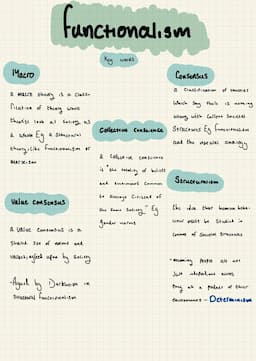 functionalism
Key words
Macro
A macro theory is a class-
ification of theory where
theories look at society as
a whole Eg a structural
theory like functionalism or
marxism
Consensus
A classification of theories
which say there is nothing
wrong with current society
structures Eg functionalism
and the
Collective Conscience
A collective conscience
is "the totality of beliefs
and sentiments common
to average citizens of
the same society" Eg
gender norms
Value consensus
A value consensus is a
shared set of norms and
values agreed upon by society
-Argued by Durkheim in
structural functionalism
Structuralism
the idea that human behav-
iour must be studied in
context of societal structures
-meaning people are not
just individual actors
they are a product of their
environment - Determinism